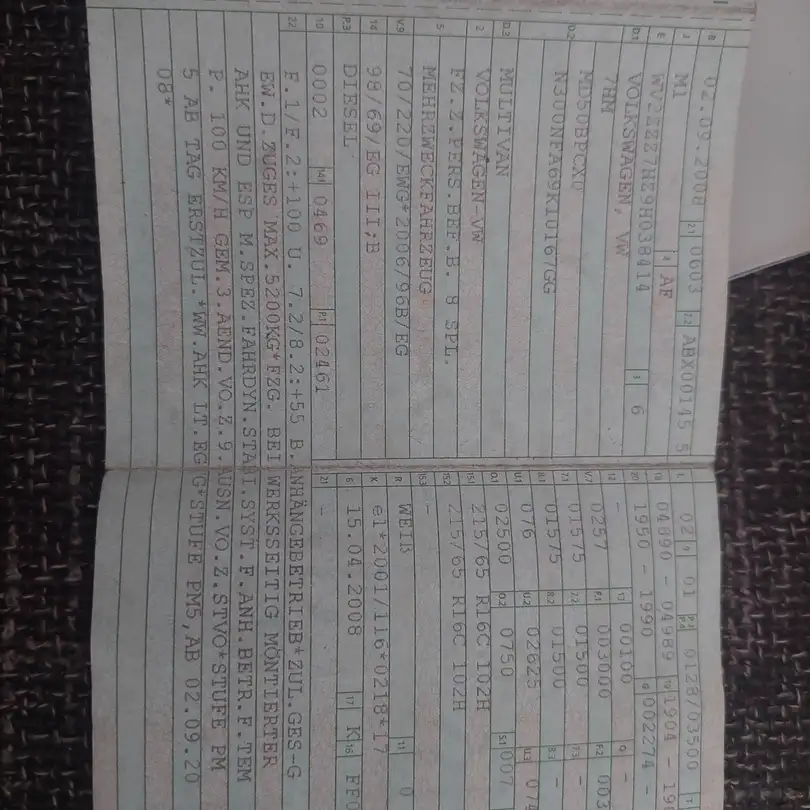 B 02.09.2008 2.1 0603 2.2 ABX00145 5
J M1 4 AF
E WV2ZZZ7HZ9H038414 3 6
D.1 VOLKSWAGEN, VW
D.2 7HM
MD50BPCX0
N300NFA69K10167GG
D.3 MULTIVAN
2 VOLKSWAGEN-VW
5 FZ.Z.PERS.BEF.B. 8 SPL.
MEHRZWECKFAHRZEUG
V.9 70/220/EWG*2006/96B/EG
14 98/69/EG III;B
P.3 DIESEL
10 0002 14.1 0469 P.1 02461
22 F.1/F.2:+100 U. 7.2/8.2:+55 B.ANHÄNGEBETRIEB*ZUL.GES-G
EW.D.ZUGES MAX.5200KG*FZG. BEI WERKSSEITIG MONTIERTER
AHK UND ESP M.SPEZ.FAHRDYN.STABI.SYST.F.ANH.BETR.F.TEM
P. 100 KM/H GEM.3.AEND.VO.Z.9.AUSN.VO.Z.STVO*STUFE PM
5 AB TAG ERSTZUL.*WW.AHK LT.EG-G*STUFE PM5,AB 02.09.20
08*
L 02 9 01 P.2 P.4 0128/03500
18 04890 - 04989 19 1904 -
20 1950 - 1990 G 002274 -
12 - 13 00100 Q -
V.7 0257 F.1 003000 F.2
7.1 01575 7.2 01500 7.3 -
8.1 01575 8.2 01500 8.3 -
U.1 076 U.2 02625 U.3
O.1 02500 O.2 0750 S.1 007
15.1 215/65 R16C 102H
15.2 215/65 R16C 102H
15.3 -
R WEIß 11 0
K e1*2001/116*0218*17
6 15.04.2008 17 K 16
21 -